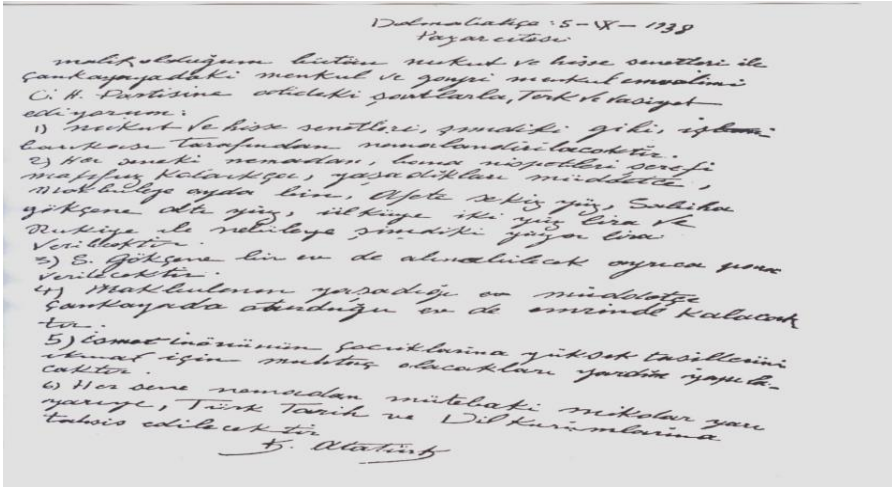 Dolmabahçe : 5-IX-1938
Pazarertesi
malik olduğum bütün nukut ve hisse senetleri ile
Çankayadaki menkul ve gayri menkul emvalimi
C. H. Partisine atideki şartlarla, Terk ve vasiyet
ediyorum:
1) nukut ve hisse senetleri, şimdiki gibi, iş
bankası tarafından nemalandırılacaktır.
2) Her seneki nemadan, bana nispetleri şerefi
mahfuz kaldıkça, yaşadıkları müddetce,
Makbuleye ayda bin, Afete sekiz yüz, Sabiha
gökçene altı yüz, ülküye iki yüz lira ve
Rukiye ile nebileye şimdiki yüzer lira
verilecektir.
3) S. Gökçene bir ev de alınabilecek ayrıca para
verilecektir.
4) Makbulenin yaşadığı müddetçe
Çankayada oturduğu ev de emrinde kalacak
tır.
5) ismet inönünün çocuklarına yüksek tahsillerini
ikmal için muhtaç olacakları yardım yapıla-
caktır.
6) Her sene nemadan mütebaki miktar yarı
yarıya, Türk Tarih ve Dil Kurumlarına
tahsis edilecektir
K. Atatürk